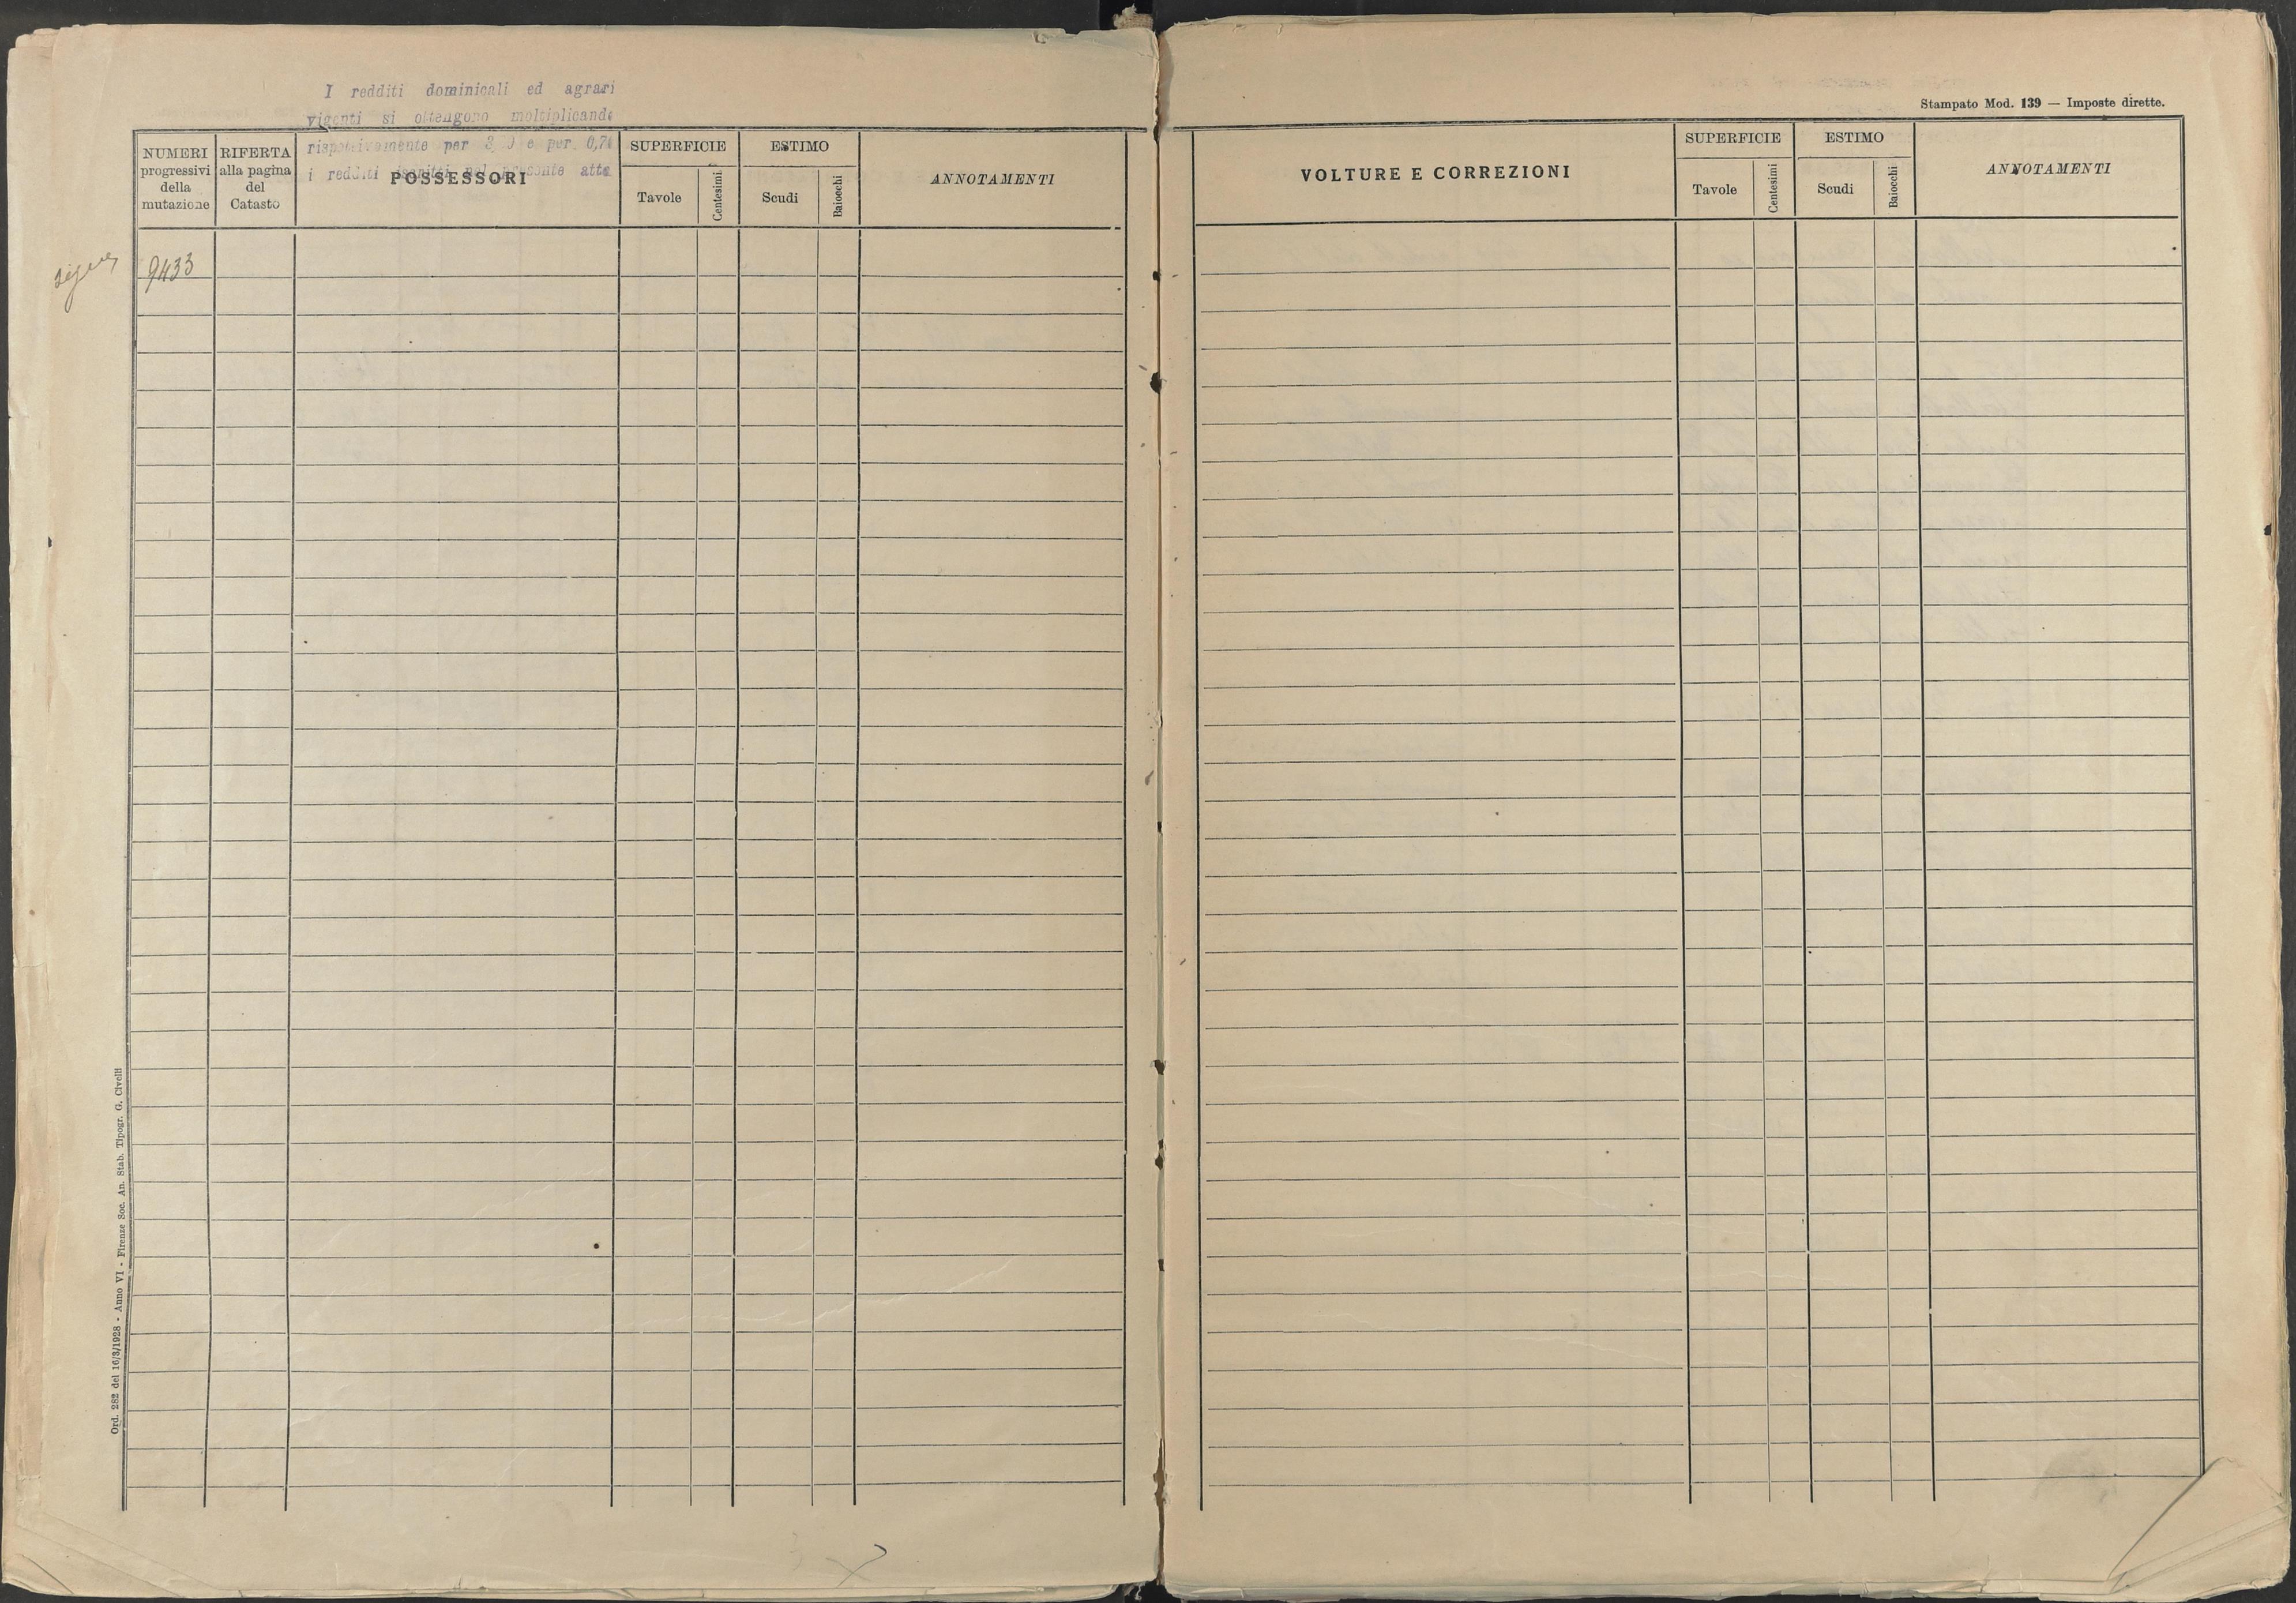 I redditi dominicali ed agrari
vigenti si ottengono moltiplicando
rispettivamente per e per 0,70
i redditi iscritti nel presente atto
Stampato Mod. 139 — Imposte dirette.
NUMERI progressivi della mutazione
RIFERTA alla pagina del Catasto
POSSESSORI
SUPERFICIE
Tavole
Centesimi
ESTIMO
Scudi
Baiocchi
ANNOTAMENTI
VOLTURE E CORREZIONI
SUPERFICIE
Tavole
Centesimi
ESTIMO
Scudi
Baiocchi
ANNOTAMENTI
segue 9433
Ord. 282 del 16/3/1928 - Anno VI - Firenze Soc. An. Stab. Tipogr. G. Civelli